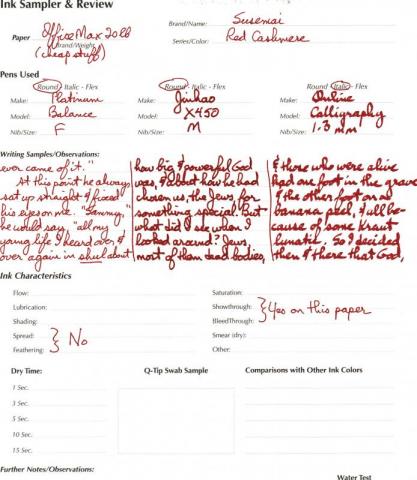 Ink Sampler & Review
Brand/Name: Susemai
Paper OfficeMax 20lb
Brand/Weight
(cheap stuff)
Series/Color: Red Cashmere
Pens Used
Round - Italic - Flex Round - Italic - Flex Round - Italic - Flex
Make: Platinum Make: Jinhao Make: Online
Model: Balance Model: X450 Model: Calligraphy
Nib/Size: F Nib/Size: M Nib/Size: 1.3 mm
Writing Samples/Observations:
ever came of it."
At this point he always
sat up straight & fixed
his eyes on me. "Sammy,"
he would say, "all my
young life I heard over &
over again in shul about
how big & powerful God
was, & about how he had
chosen us, the Jews, for
something special. But
what did I see when I
looked around? Jews,
most of them dead bodies,
& those who were alive
had one foot in the grave
& the other foot on a
banana peel, & all be-
cause of some Kraut
lunatic. So I decided
then & there that God,
Ink Characteristics
Flow: Saturation:
Lubrication: Showthrough: } Yes on this paper
Shading: BleedThrough:
Spread: } No Smear (dry):
Feathering: Other:
Dry Time: Q-Tip Swab Sample Comparisons with Other Ink Colors
1 Sec.
3 Sec.
5 Sec.
10 Sec.
15 Sec.
Further Notes/Observations:
Water Test